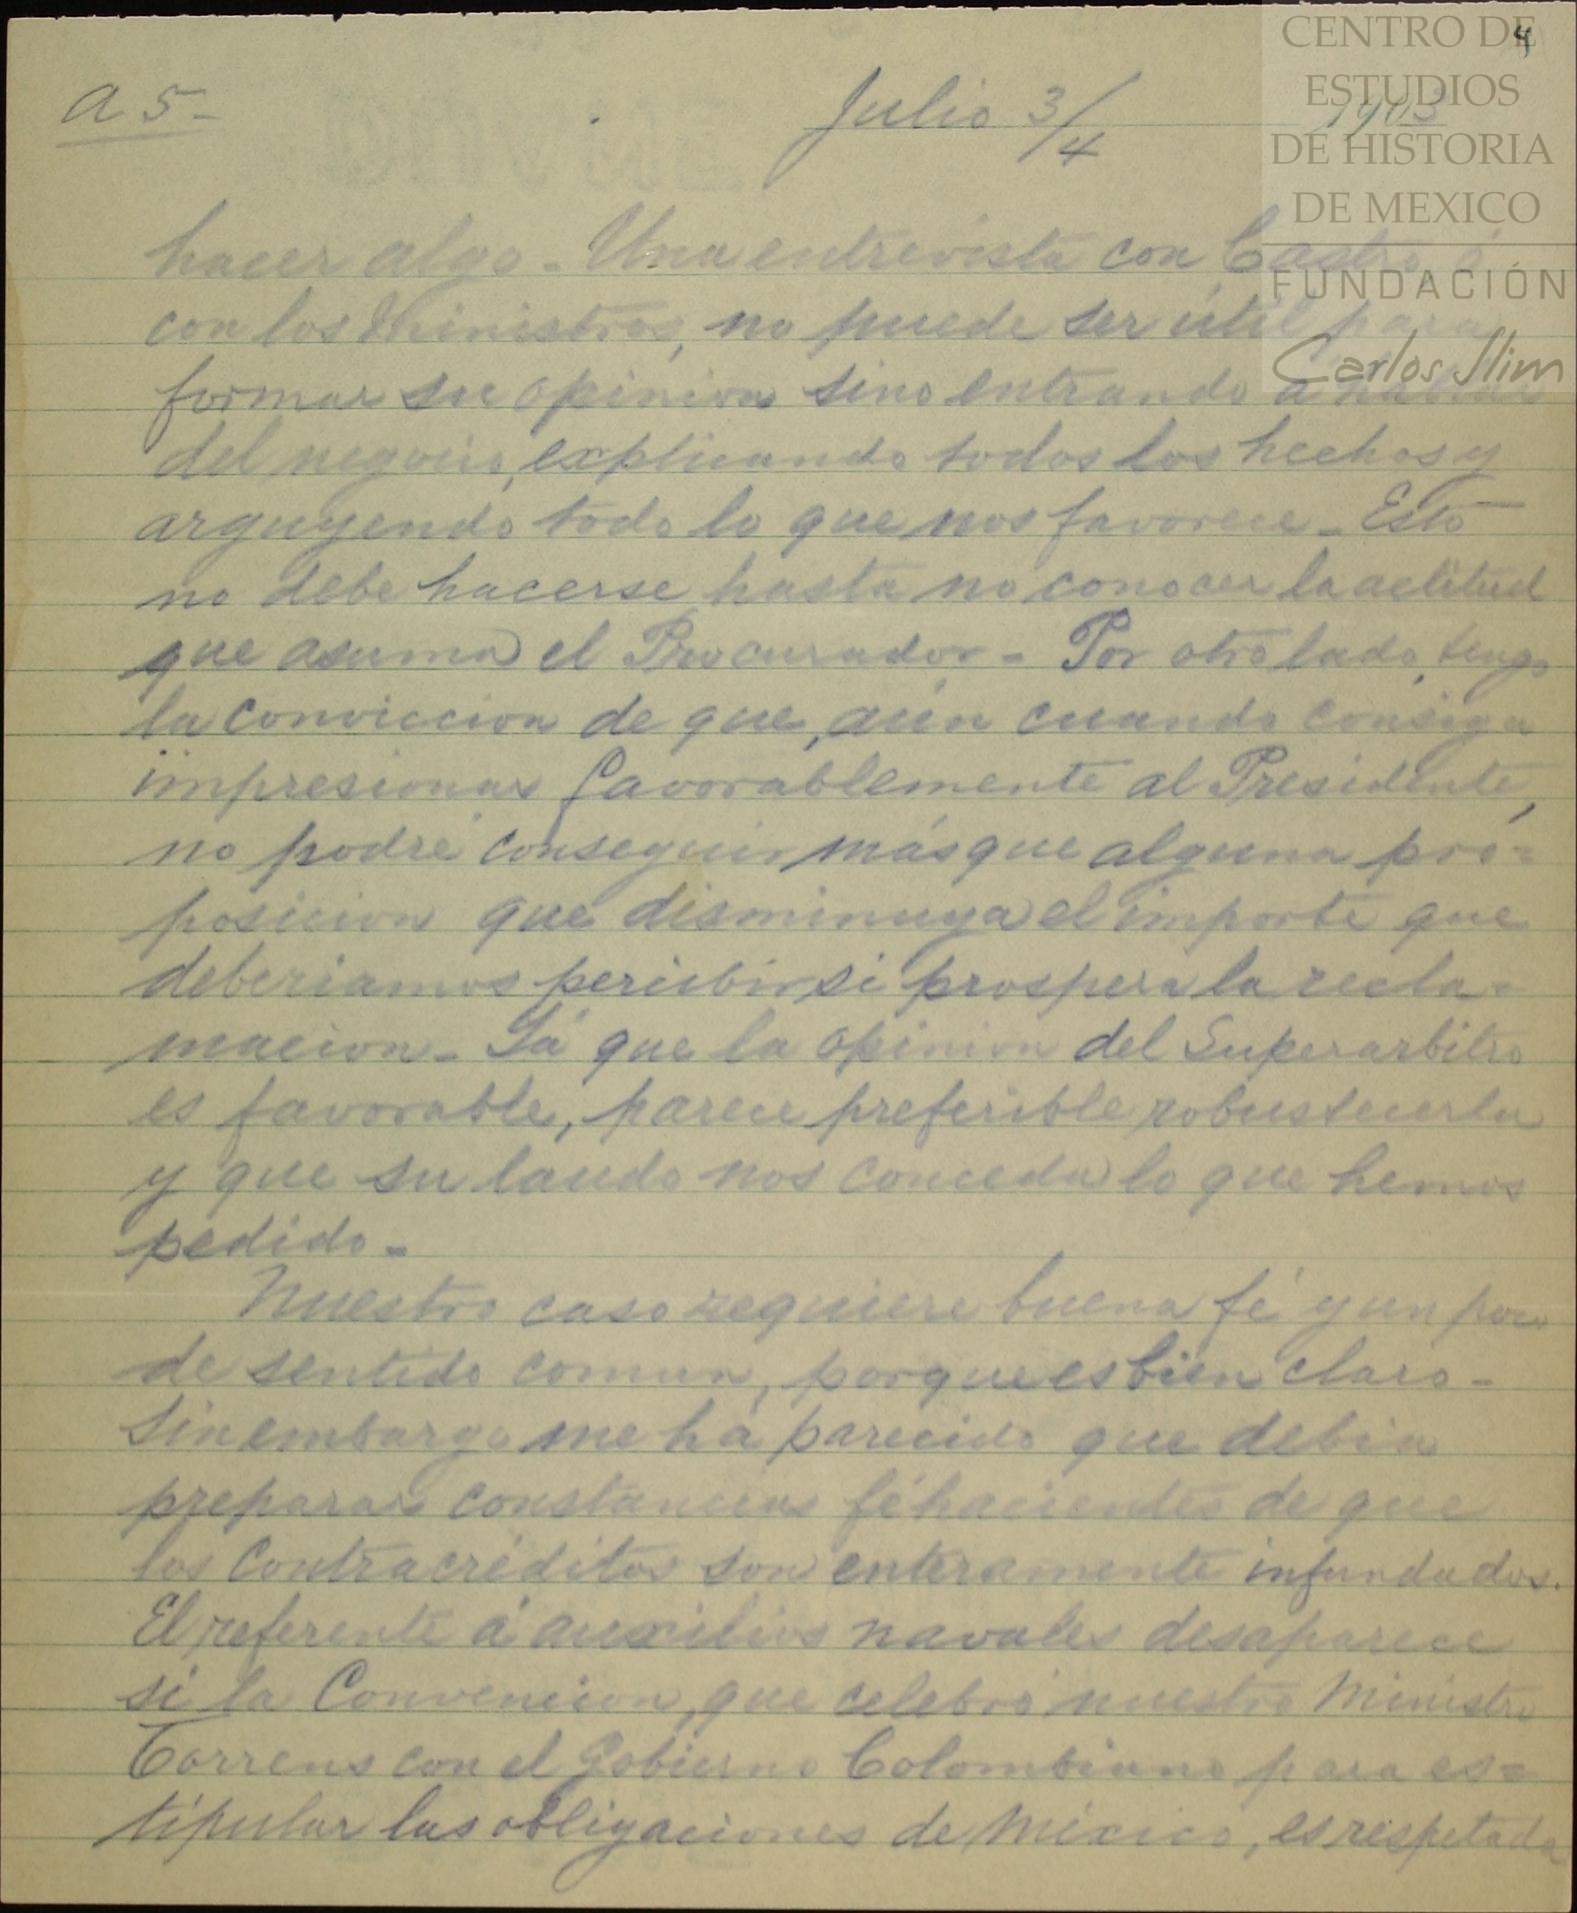 4
CENTRO DE
ESTUDIOS
DE HISTORIA
DE MEXICO
FUNDACIÓN
Carlos Slim
a 5 -
Julio 3/4
1903
hacer algo - Una entrevista con Castro ó
con los Ministros, no puede ser útil para
formar su opinion sino entrando a hablar
del negocio, explicando todos los hechos y
arguyendo todo lo que nos favorece - Esto
no debe hacerse hasta no conocer la actitud
que asuma el Procurador - Por otro lado, tengo
la conviccion de que, aún cuando consiga
impresionar favorablemente al Presidente,
no podré conseguir más que alguna pro=
posicion que disminuya el importe que
deberiamos percibir si prospera la recla=
macion - Yá que la opinion del Superarbitro
es favorable, parece preferible robustecerla
y que su laudo nos conceda lo que hemos
pedido -
Nuestro caso requiere buena fé y un poco
de sentido comun, porque es bien claro -
Sin embargo me há parecido que debia
preparar constancias féhacientes de que
los Contracréditos son enteramente infundados.
El referente á auxilios navales desaparece
si la Convencion, que celebró nuestro Ministro
Torrens con el Gobierno Colombiano para es=
tipular las obligaciones de México, es respetada